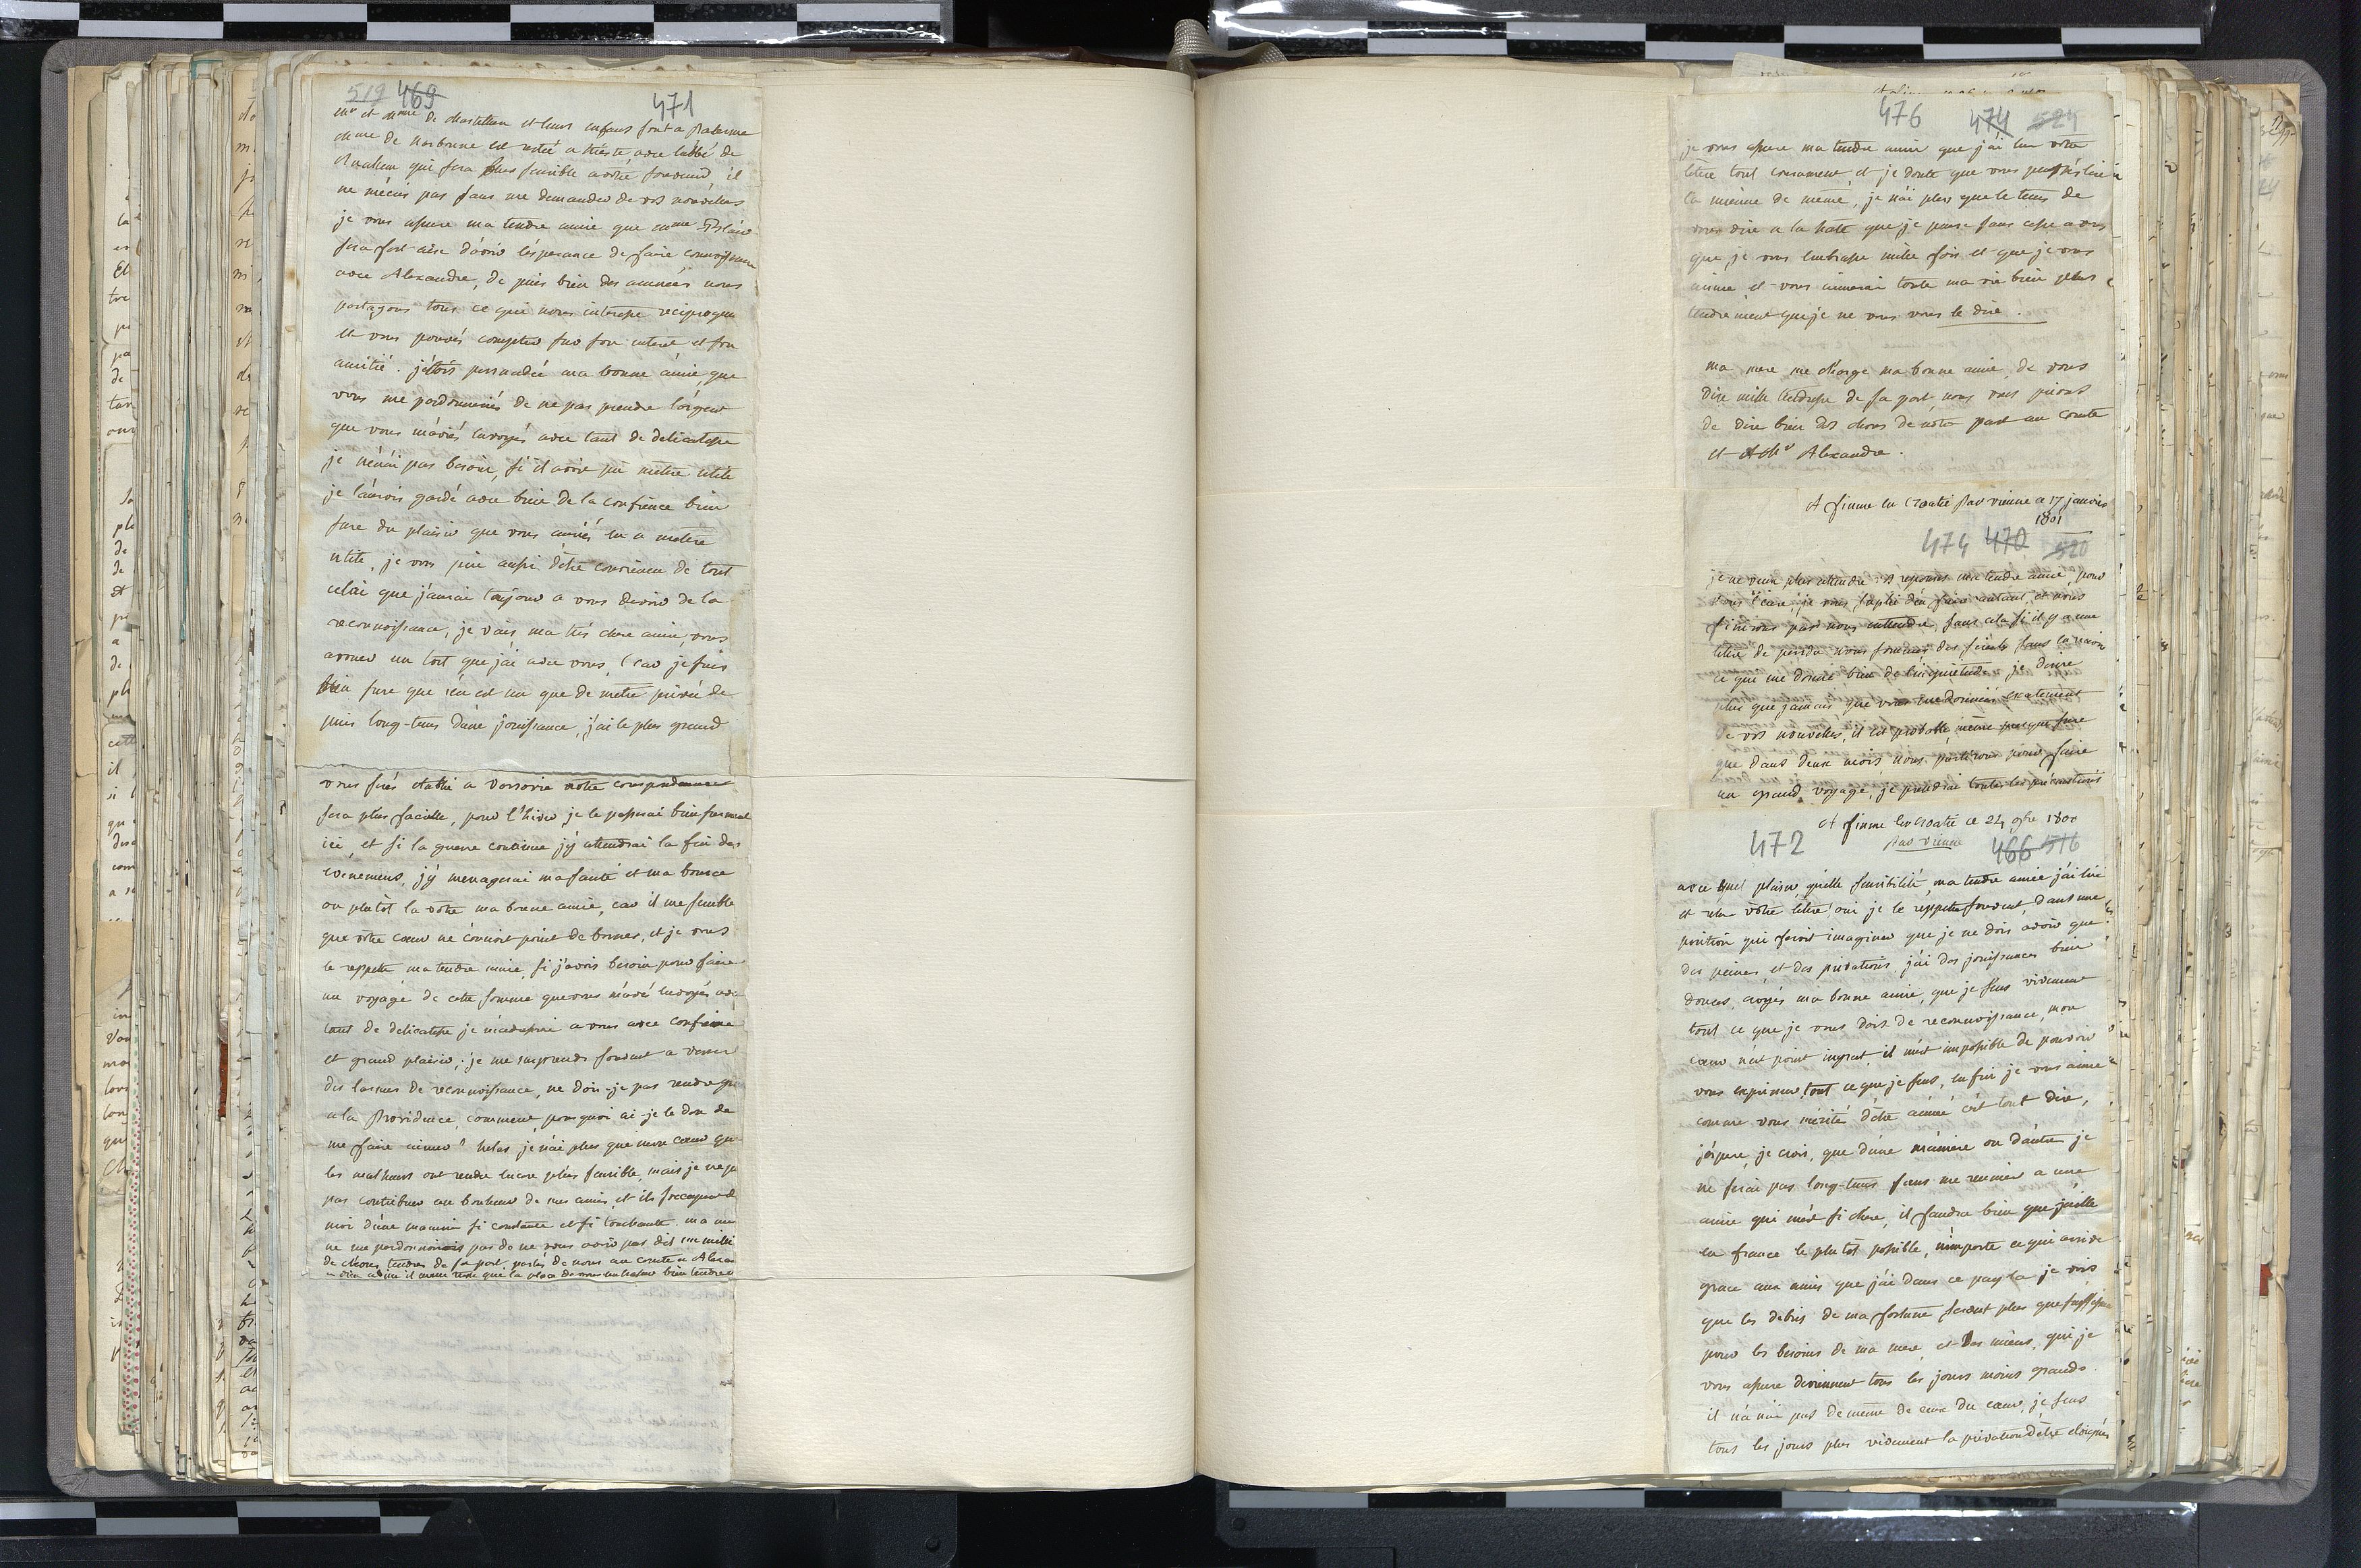 519 469 471
Mr et Mme de chastellux et leurs enfans sont a Palerme
Mme de Narbonne est restée a trieste avec labbé de
qui sera plus sensible a votre souvenir, il
ne mécris pas sans me demander de vos nouvelles
je vous assure ma tendre amie que mme
sera fort aise d'avoir lésperance de faire connoissance
avec Alexandre, de puis bien des années nous
partageons tous ce qui nous interesse reciproquem
et vous pouvés compter sur son interet et son
amitié. j'étois persuadée ma bonne amie, que
vous me pardonneriés de ne pas prendre l'argent
que vous m'aviés envoyés avec tant de delicatesse
je n'en ai pas besoin, si il avoit pu m'etre utile
je l'aurois gardé avec bien de la confience bien
sure du plaisir que vous auriés eu a m'etre
utile, je vous prie aussi d'etre convaincu de tout
celui que j'aurai toujour a vous devoir de la
reconnoissance, je vais, ma très chere amie, vous
avouer un tort que j'ai avec vous, car je suis
bien sure que s'en est un que de m'etre privée de
puis long-tems d'une jouissance, j'ai le plus grand
vous serés etablie a Varsovie notre corespondance
sera plus facille, pour l'hiver je le passerai bien surement
ici, et si la guerre continue j'y attendrai la fin des
evenemens, j'y menagerai ma santé et ma bource
ou plutot la votre ma bonne amie, car il me semble
que votre cœur ne connoit point de bornes, et je vous
le reppette ma tendre amie, si j'avois besoin pour faire
un voyage de cette somme que vous m'aviés envoyés avec
tant de delicatesse je m'adresserai a vous avec confience
et grand plaisir; je me surprends souvent a verser
des larmes de reconnoissance, ne dois-je pas rendre gra
a la Providence, comment, pourquoi ai-je le don de
me faire aimer? helas je n'ai plus que mon cœur que
les malheurs ont rendu encore plus sensible, mais je ne p
pas contribuer au bonheur de mes amis, et ils s'occupent de
moi d'une maniere si constante et si touchante. ma m
ne me pardonneroit pas de ne vous avoir pas dit mille
de choses tendres de sa part, parlés de nous au comte a Alexan
adieu il ne me reste que la place de vous embrasser bien tendrem
476 474 524
je vous assure ma tendre amie que j'ai lue votre
lettre tout courament et je doute que vous puissiés lire
la mienne de même, je n'ai plus que le tems de
vous dire a la hate que je pense sans cesse a vous
que je vous embrasse mille fois et que je vous
aime et vous aimerai toute ma vie bien plus
tendrement que je ne vous le dire.
ma mere me charge ma bonne amie, de vous
dire mille tendresse de sa part, nous vous prions
de dire bien des choses de notre part au comte
et a Mr Alexandre.
A fiume en Croatie par vienne ce 17 janvier
1801
474 470 520
je ne veux plus attendre vos reponses ma tendre amie, pour
vous écrire, je vous suplie d'en faire autant, et nous
finirons par nous entendre, sans cela si il y a une
lettre de perdu nous sommes des siecle sans la ravoir
ce qui me donne bien de l'inquietude, je desire
plus que jamais que vous me donniés exatement
de vos nouvelles, il est probable, même presque sure
que dans deux mois nous partirons pour faire
un grand voyage, je prendrai toutes les précautions
A fiume en Croatie ce 24 9bre 1800
par vienne
472 466 516
avec quel plaisir, quelle sensibilité, ma tendre amie j'ai lue
et relu votre lettre! oui je le reppette souvent, dans une
position qui feroit imaginer que je ne dois avoir que
des peines et des privations, j'ai des jouissances bien
douces, croyés ma bonne amie, que je sens vivement
tout ce que je vous dois de reconnoissance, mon
cœur n'est point ingrat, il m'est impossible de pouvoir
vous exprimer tout ce que je sens, enfin je vous aime
comme vous mérités d'etre aimée c'est tout dire,
j'espere, je crois, que d'une maniere ou d'autre je
ne serai pas long-tems sans me reunir a une
amie qui m'est si chere, il faudra bien que j'aille
en france le plutot possible, n'importe ce qui arrive
grace aux amis que j'ai dans ce pays la je vois
que les debris de ma fortune seront plus que suffisans
pour les besoins de ma mere, et des miens, qui je
vous assure deviennent tous les jours moins grands
il n'en est pas de meme de ceux du cœur, je sens
tous les jours plus vivement la privation d'etre eloignés